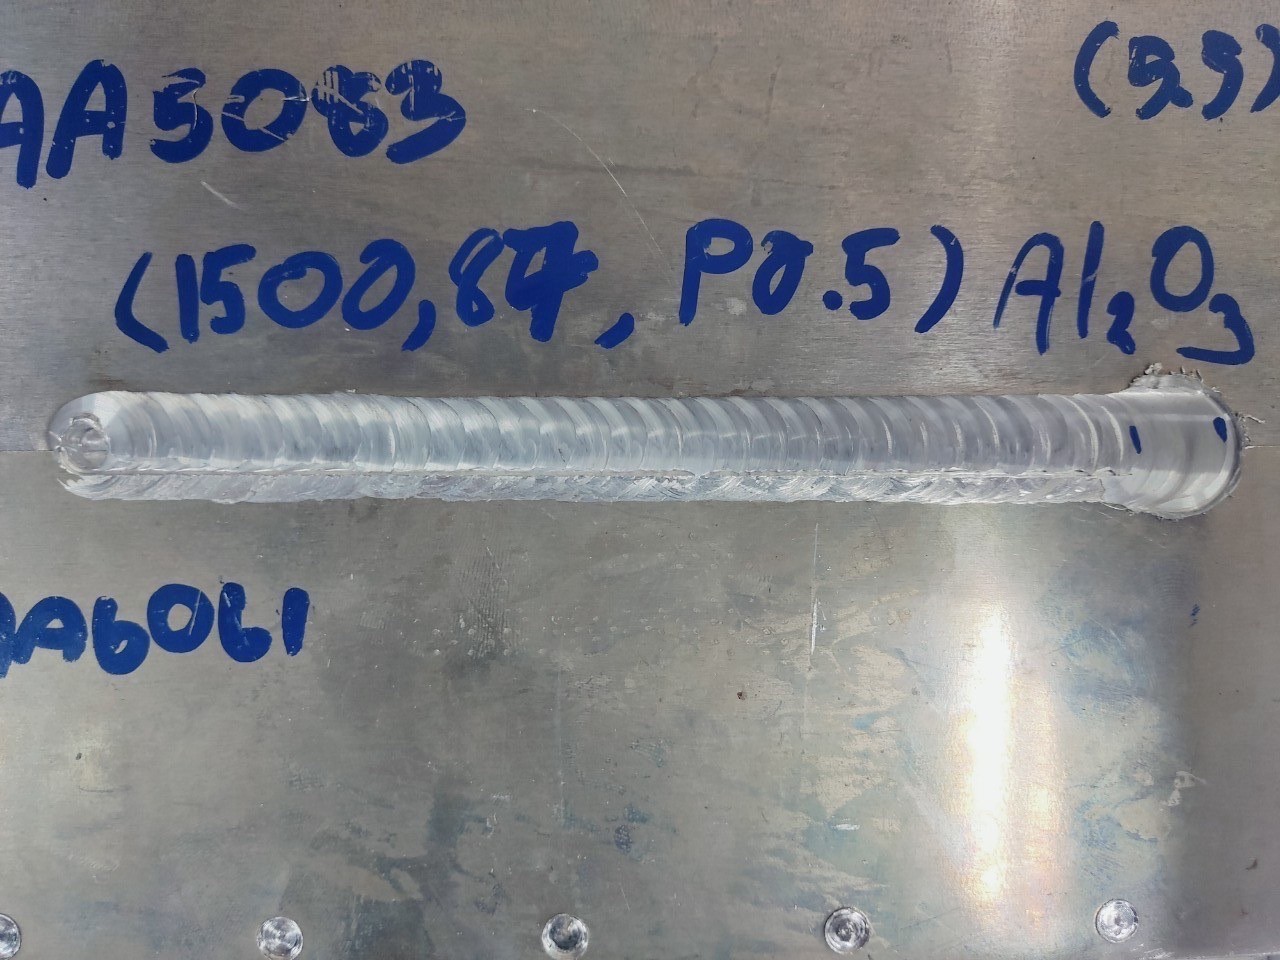 AA5083
(5,5)
(1500,87, P0.5) Al₂O₃
AA6061